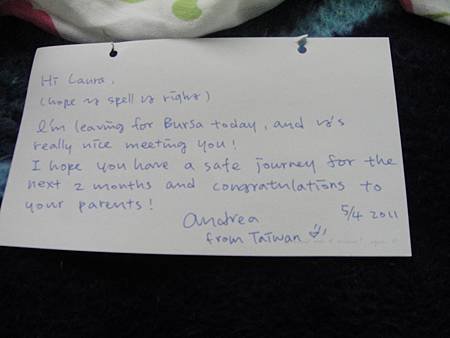 Hi Laura,
(hope is spell is right)
I'm leaving for Bursa today, and it's
really nice meeting you!
I hope you have a safe journey for the
next 2 months and congratulations to
your parents!
Andrea 5/4 2011
from Taiwan